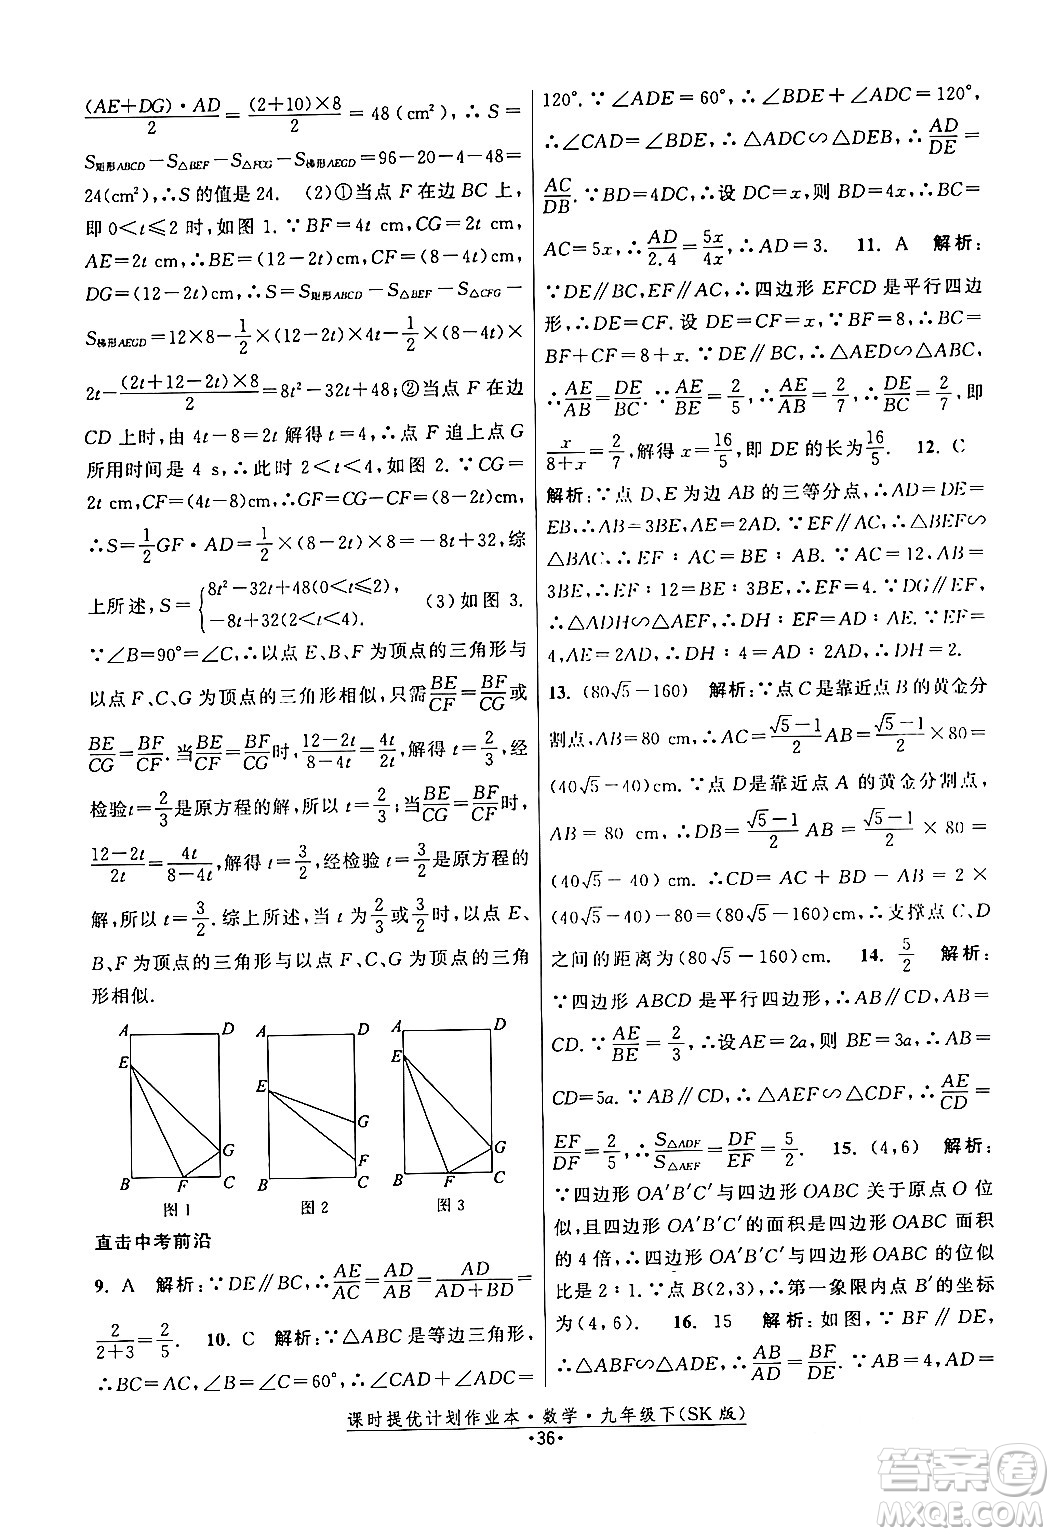 (AE+DG)·AD/2=(2+10)×8/2=48(cm²),∴S=
S矩形ABCD−S△BEF−S△FCG−S梯形AEGD=96−20−4−48=
24(cm²),∴S的值是24. (2)①当点F在边BC上,
即0<t≤2时,如图1.∵BF=4t cm,CG=2t cm,
AE=2t cm,∴BE=(12−2t)cm,CF=(8−4t)cm,
DG=(12−2t)cm,∴S=S矩形ABCD−S△BEF−S△CFG−
S梯形AEGD=12×8−1/2×(12−2t)×4t−1/2×(8−4t)×
2t−(2t+12−2t)×8/2=8t²−32t+48;②当点F在边
CD上时,由4t−8=2t解得t=4,∴点F追上点G
所用时间是4 s,∴此时2<t<4,如图2.∵CG=
2t cm,CF=(4t−8)cm,∴GF=CG−CF=(8−2t)cm,
∴S=1/2GF·AD=1/2×(8−2t)×8=−8t+32,综
上所述,S={8t²−32t+48(0<t≤2),
−8t+32(2<t<4). (3)如图3.
∵∠B=90°=∠C,∴以点E、B、F为顶点的三角形与
以点F、C、G为顶点的三角形相似,只需BE/CF=BF/CG或
BE/CG=BF/CF.当BE/CF=BF/CG时,(12−2t)/(8−4t)=4t/2t,解得t=2/3,经
检验t=2/3是原方程的解,所以t=2/3;当BE/CG=BF/CF时,
(12−2t)/2t=4t/(8−4t),解得t=3/2,经检验t=3/2是原方程的
解,所以t=3/2.综上所述,当t为2/3或3/2时,以点E、
B、F为顶点的三角形与以点F、C、G为顶点的三角
形相似.
A D E G B F C
图1
A D E G F B C
图2
A D E G B F C
图3
直击中考前沿
9. A 解析:∵DE∥BC,∴AE/AC=AD/AB=AD/(AD+DB)=
2/(2+3)=2/5. 10. C 解析:∵△ABC是等边三角形,
∴BC=AC,∠B=∠C=60°,∴∠CAD+∠ADC=
120°.∵∠ADE=60°,∴∠BDE+∠ADC=120°,
∴∠CAD=∠BDE,∴△ADC∽△DEB,∴AD/DE=
AC/DB.∵BD=4DC,∴设DC=x,则BD=4x,∴BC=
AC=5x,∴AD/2.4=5x/4x,∴AD=3. 11. A 解析:
∵DE∥BC,EF∥AC,∴四边形EFCD是平行四边
形,∴DE=CF.设DE=CF=x,∵BF=8,∴BC=
BF+CF=8+x.∵DE∥BC,∴△AED∽△ABC,
∴AE/AB=DE/BC.∵AE/BE=2/5,∴AE/AB=2/7,∴DE/BC=2/7,即
x/(8+x)=2/7,解得x=16/5,即DE的长为16/5. 12. C
解析:∵点D、E为边AB的三等分点,∴AD=DE=
EB,∴AB=3BE,AE=2AD.∵EF∥AC,∴△BEF∽
△BAC,∴EF∶AC=BE∶AB.∵AC=12,AB=
3BE,∴EF∶12=BE∶3BE,∴EF=4.∵DG∥EF,
∴△ADH∽△AEF,∴DH∶EF=AD∶AE.∵EF=
4,AE=2AD,∴DH∶4=AD∶2AD,∴DH=2.
13. (80√5−160) 解析:∵点C是靠近点B的黄金分
割点,AB=80 cm,∴AC=(√5−1)/2AB=(√5−1)/2×80=
(40√5−40)cm.∵点D是靠近点A的黄金分割点,
AB=80 cm,∴DB=(√5−1)/2AB=(√5−1)/2×80=
(40√5−40)cm.∴CD=AC+BD−AB=2×
(40√5−40)−80=(80√5−160)cm,∴支撑点C、D
之间的距离为(80√5−160)cm. 14. 5/2 解析:
∵四边形ABCD是平行四边形,∴AB∥CD,AB=
CD.∵AE/BE=2/3,∴设AE=2a,则BE=3a,∴AB=
CD=5a.∵AB∥CD,∴△AEF∽△CDF,∴AE/CD=
EF/DF=2/5,∴S△ADF/S△AEF=DF/EF=5/2. 15. (4,6) 解析:
∵四边形OA′B′C′与四边形OABC关于原点O位
似,且四边形OA′B′C′的面积是四边形OABC面积
的4倍,∴四边形OA′B′C′与四边形OABC的位似
比是2∶1.∵点B(2,3),∴第一象限内点B′的坐标
为(4,6). 16. 15 解析:如图,∵BF∥DE,
∴△ABF∽△ADE,∴AB/AD=BF/DE.∵AB=4,AD=
课时提优计划作业本·数学·九年级下(SK版)
·36·
答案圈
MXQE.COM